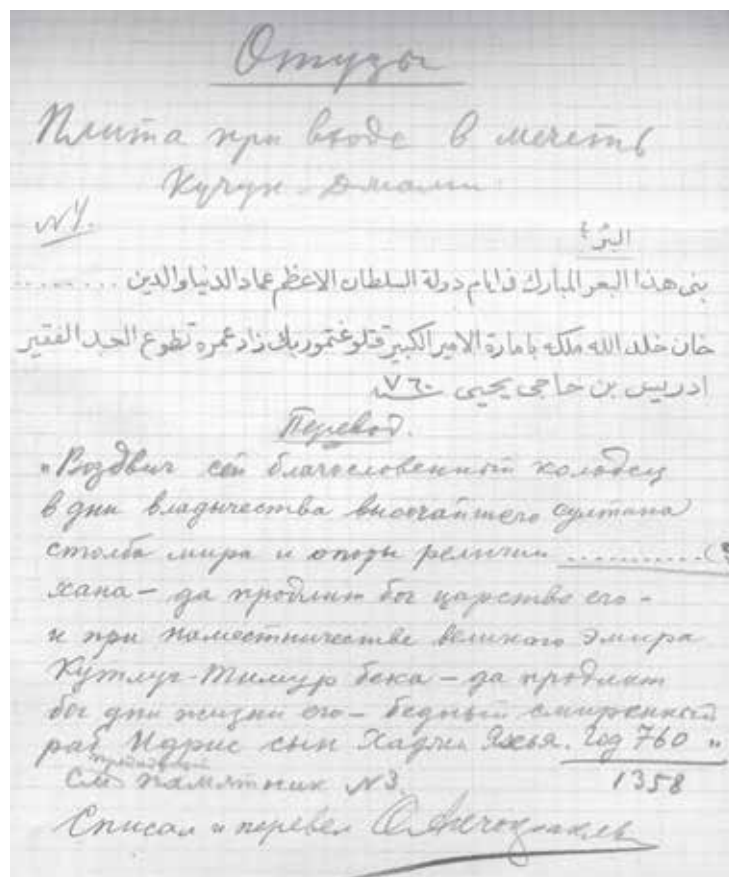 Отузы
Плита при входе в мечеть
Кучук-Джами
№1.
البئر؟
بنى هذا البعر المبارك فى ايام دولة السلطان الاعظم عماد الدنيا والدين ..........
خان خلد الله ملكه بامارة الامير الكبير قتلوغتمور بك زاد عمره تطوع العبد الفقير
ادريس بن حاجى يحيى ٧٦٠
Перевод.
"Воздвиг сей благословенный колодец
в дни владычества высочайшего султана
столба мира и опоры религии ...........(?
хана – да продлит бог царство его –
и при наместничестве великого эмира
Кутлуг-Тимур бека – да продлит
бог дни жизни его – бедный смиренный
раб Идрис сын Хаджи Яхья. Год 760 "
См. памятник №3. 1358
Списал и перевел О. Акчокраклы